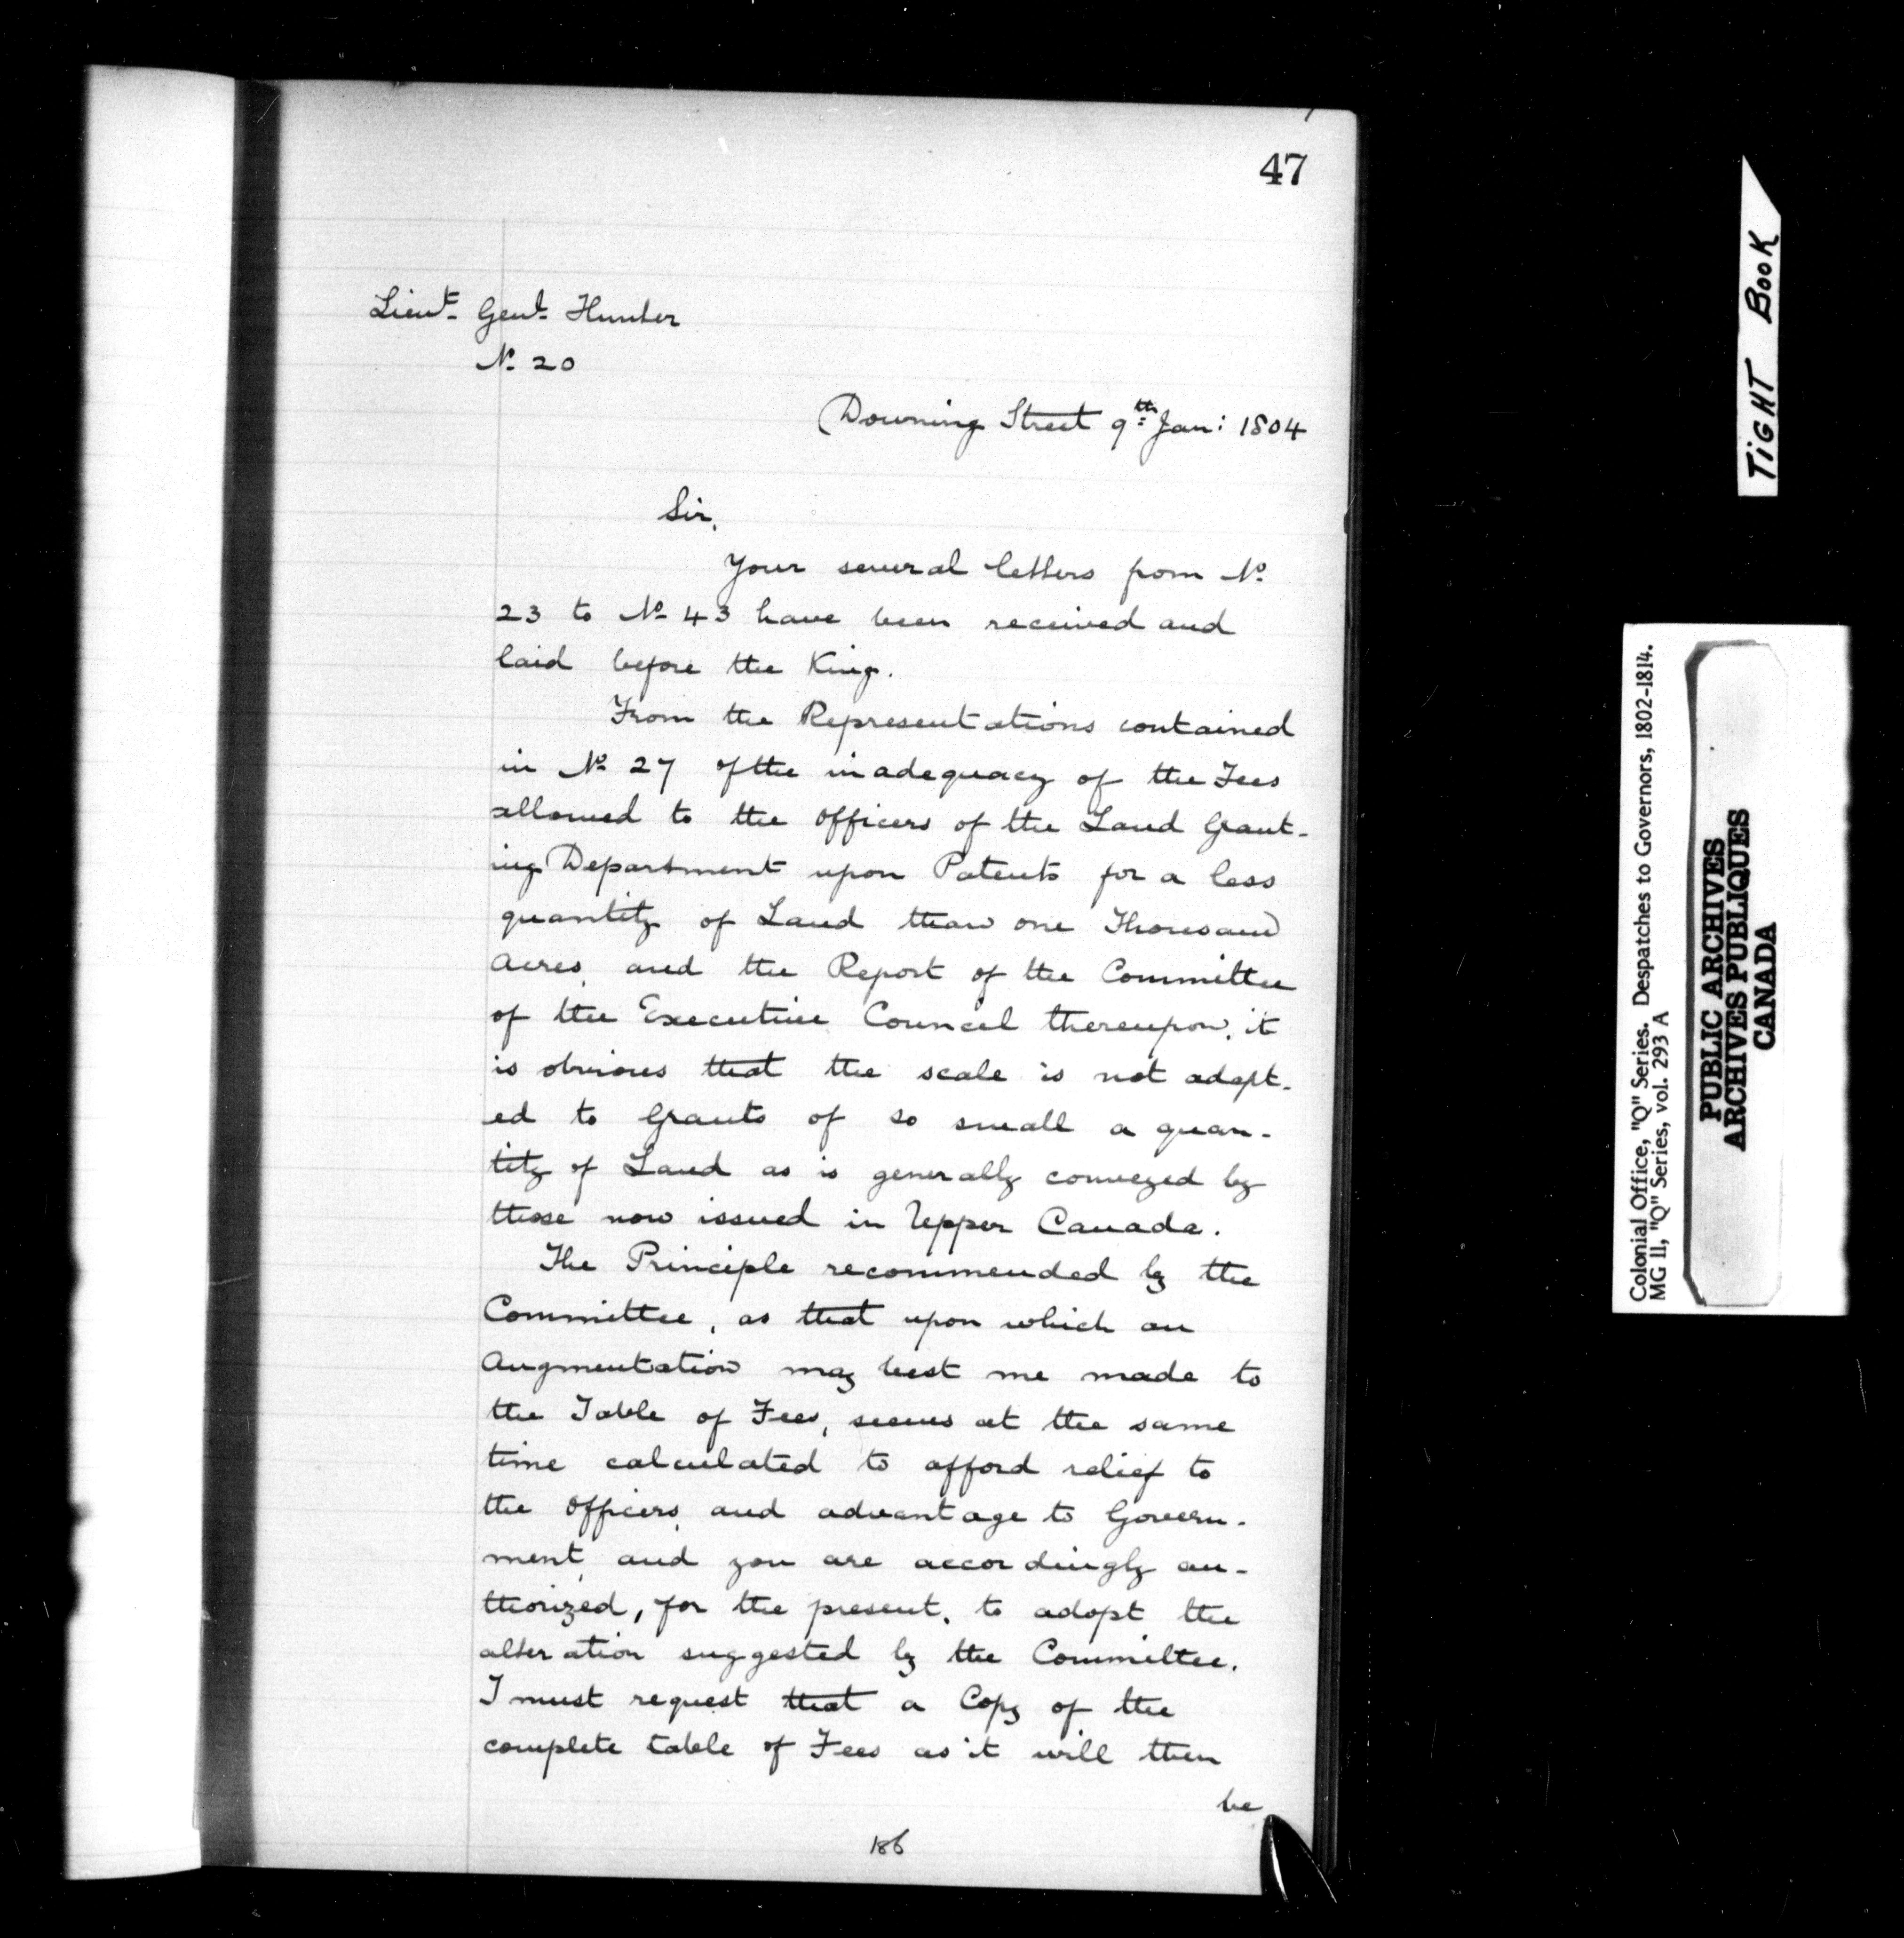 47
Lieut. Genl. Hunter
No. 20
Downing Street 9th Jan: 1804
Sir,
Your several letters from No.
23 to No. 43 have been received and
laid before the King.
From the Representations contained
in No. 27 of the inadequacy of the Fees
allowed to the Officers of the Land Grant-
ing Department upon Patents for a less
quantity of Land than one Thousand
Acres, and the Report of the Committee
of the Executive Council thereupon, it
is obvious that the scale is not adapt-
ed to Grants of so small a quan-
tity of Land as is generally conveyed by
those now issued in Upper Canada.
The Principle recommended by the
Committee, as that upon which an
Augmentation may best me made to
the Table of Fees, seems at the same
time calculated to afford relief to
the Officers, and advantage to Govern-
ment, and you are accordingly au-
thorized, for the present, to adopt the
alteration suggested by the Committee.
I must request that a Copy of the
complete table of Fees as it will then
be
186
TIGHT BOOK
Colonial Office, "Q" Series. Despatches to Governors, 1802-1814.
MG 11, "Q" Series, vol. 293 A
PUBLIC ARCHIVES
ARCHIVES PUBLIQUES
CANADA